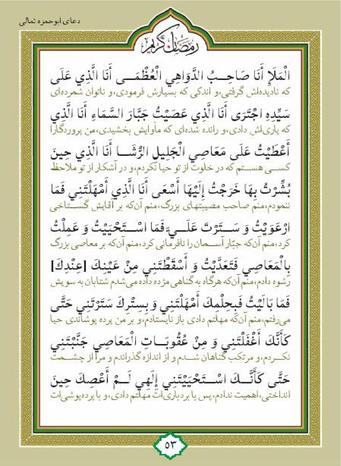 دعای ابوحمزه ثمالی
رمضان کریم
الْمَلَإِ أَنَا صَاحِبُ الدَّوَاهِي الْعُظْمَى أَنَا الَّذِي عَلَى
که نادیده‌اش گرفتی، و اندکی که بسیارش فرمودی، و ناتوان شمرده‌ای
سَيِّدِهِ اجْتَرَى أَنَا الَّذِي عَصَيْتُ جَبَّارَ السَّمَاءِ أَنَا الَّذِي
که یاری‌اش دادی، و رانده شده‌ای که مأوایش بخشیدی، من پروردگارا
أَعْطَيْتُ عَلَى مَعَاصِي الْجَلِيلِ الرُّشَا أَنَا الَّذِي حِينَ
کسی هستم که در خلوت از تو حیا نکردم، و در آشکار از تو ملاحظه
بُشِّرْتُ بِهَا خَرَجْتُ إِلَيْهَا أَسْعَى أَنَا الَّذِي أَمْهَلْتَنِي فَمَا
ننمودم، منم صاحب مصیبتهای بزرگ، منم آن‌که بر آقایش گستاخی
ارْعَوَيْتُ وَ سَتَرْتَ عَلَيَّ فَمَا اسْتَحْيَيْتُ وَ عَمِلْتُ
کرد، منم آن‌که جبّار آسمان را نافرمانی کرد، منم آن‌که بر معاصی بزرگ
بِالْمَعَاصِي فَتَعَدَّيْتُ وَ أَسْقَطْتَنِي مِنْ عَيْنِكَ [عِنْدِكَ]
رشوه دادم، منم آن‌که هرگاه به گناهی مژده داده می‌شدم شتابان به سویش
فَمَا بَالَيْتُ فَبِحِلْمِكَ أَمْهَلْتَنِي وَ بِسِتْرِكَ سَتَرْتَنِي حَتَّى
می‌رفتم، منم آن‌که مهلتم دادی باز نایستادم، و بر من پرده پوشاندی حیا
كَأَنَّكَ أَغْفَلْتَنِي وَ مِنْ عُقُوبَاتِ الْمَعَاصِي جَنَّبْتَنِي
نکردم، و مرتکب گناهان شدم و از اندازه گذراندم و مرا از چشمت
حَتَّى كَأَنَّكَ اسْتَحْيَيْتَنِي إِلَهِي لَمْ أَعْصِكَ حِينَ
انداختی، اهمیت ندادم، پس با بردباری‌ات مهلتم دادی، و با پرده‌پوشی‌ات
۵۳